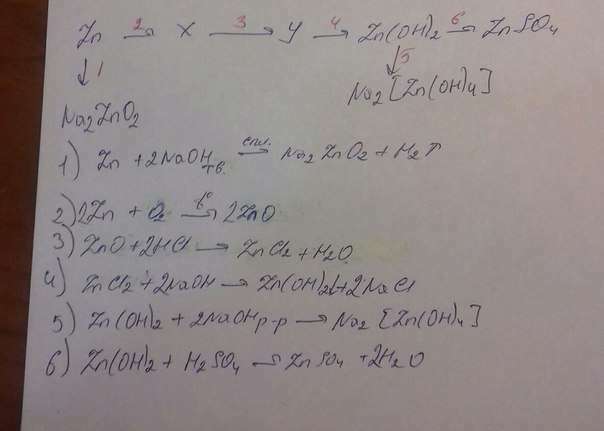 Zn 2→ X 3→ Y 4→ Zn(OH)2 6→ ZnSO4
↓1 ↓5
Na2[Zn(OH)4]
Na2ZnO2
1) Zn + 2NaOH тв. спл.→ Na2ZnO2 + H2↑
2) 2Zn + O2 t°→ 2ZnO
3) ZnO + 2HCl → ZnCl2 + H2O
4) ZnCl2 + 2NaOH → Zn(OH)2↓ + 2NaCl
5) Zn(OH)2 + 2NaOH р-р → Na2[Zn(OH)4]
6) Zn(OH)2 + H2SO4 → ZnSO4 + 2H2O